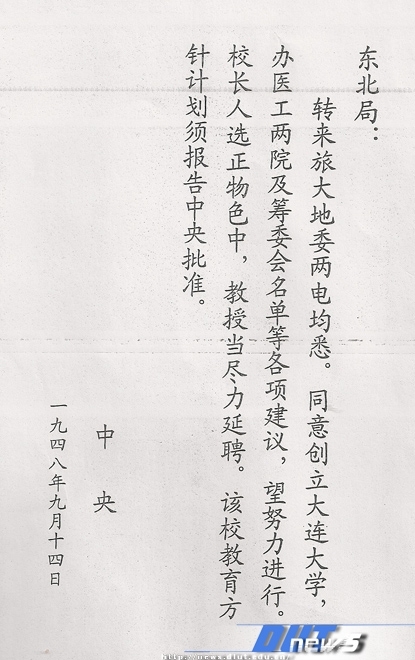 东北局：
转来旅大地委两电均悉。同意创立大连大学，
办医工两院及筹委会名单等各项建议，望努力进行。
校长人选正物色中，教授当尽力延聘。该校教育方
针计划须报告中央批准。
中央
一九四八年九月十四日
DLUT
news